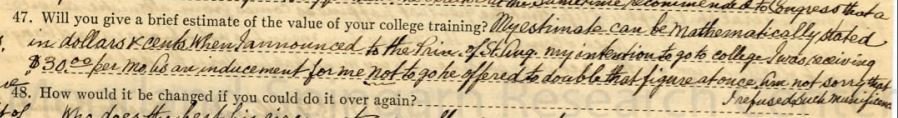 recommended to Congress that a
47. Will you give a brief estimate of the value of your college training? My estimate can be Mathematically stated
in dollars & cents When I announced to the Prin. of St. Aug. my intention to go to college I was receiving
$30.00 per mo. As an inducement for me not to go he offered to double that figure at once. Am not sorry that
I refused such munificence
48. How would it be changed if you could do it over again?